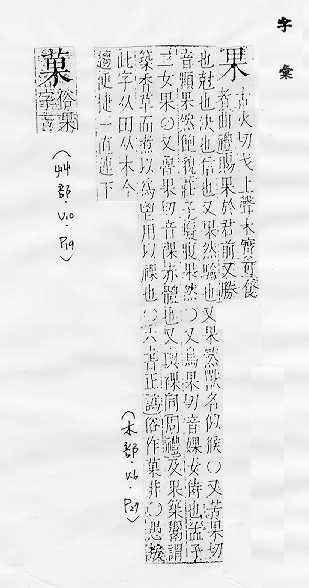 字彙
果
古火切戈上聲木實可食
者曲禮賜果於君前又勝
也尅也決也信也又果然驗也又果然獸名似猴〇又苦果切
音顆果然飽貌莊子腹果然〇又烏果切音婐女侍也孟子
二女果〇又魯果切音裸赤體也又與祼同周禮及果築鬻謂
築香草而煮以為鬯用以祼也〇六書正譌俗作菓非〇愚按
此字从田从木今
便捷一直連下
(木部·V6·P27)
菓
俗果
字
(艸部·V10·P19)